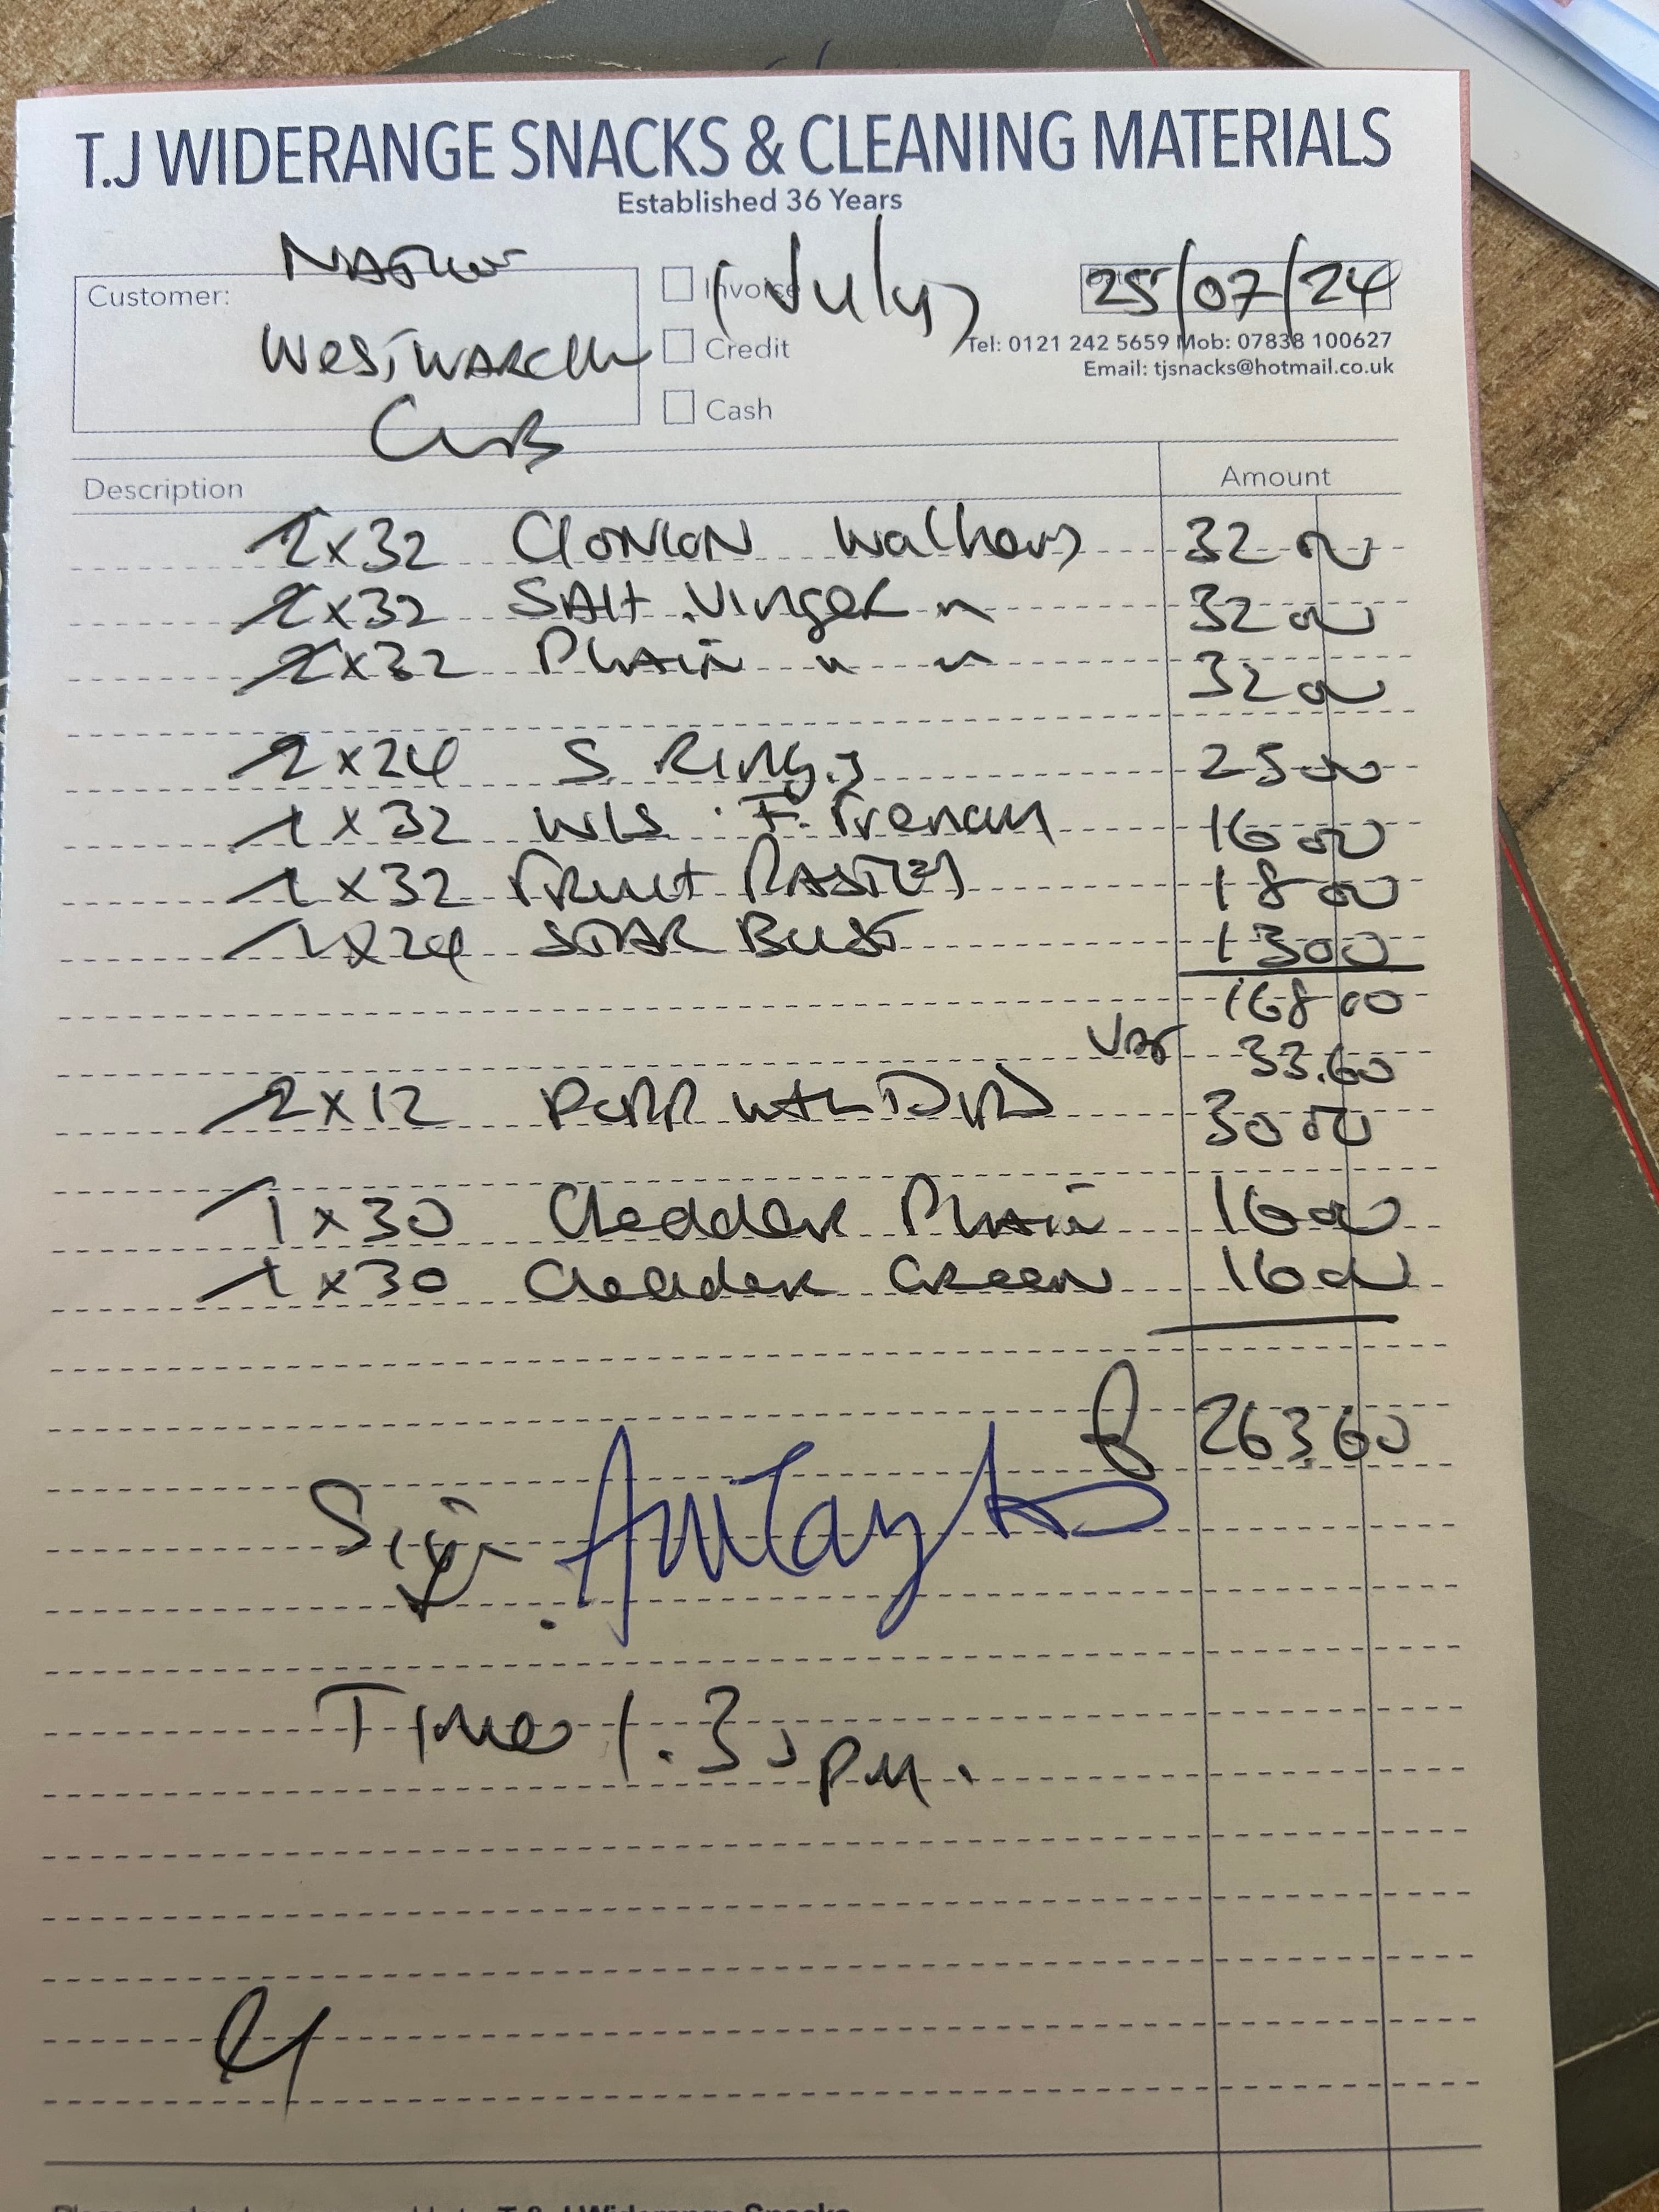 T.J WIDERANGE SNACKS & CLEANING MATERIALS
Established 36 Years
Customer:
Westwarch
Club
Invoice
Credit
Cash
(July)
25/07/24
Tel: 0121 242 5659 Mob: 07838 100627
Email: tjsnacks@hotmail.co.uk
Description Amount
2x32 C/ONION Walkers 32 00
2x32 SAlt Vinger " 32 00
2x32 PLAIN " " 32 00
2x24 S. Rings 25 00
1x32 WLS 16 00
1x32 FRUIT PASTILES 18 00
1x24 STAR BUST 13 00
168 00
Vat 33.60
2x12 30 00
1x30 Chedder PLAIN 16 00
1x30 Chedder Green 16 00
£ 263.60
Sign
Time 1.30 PM.